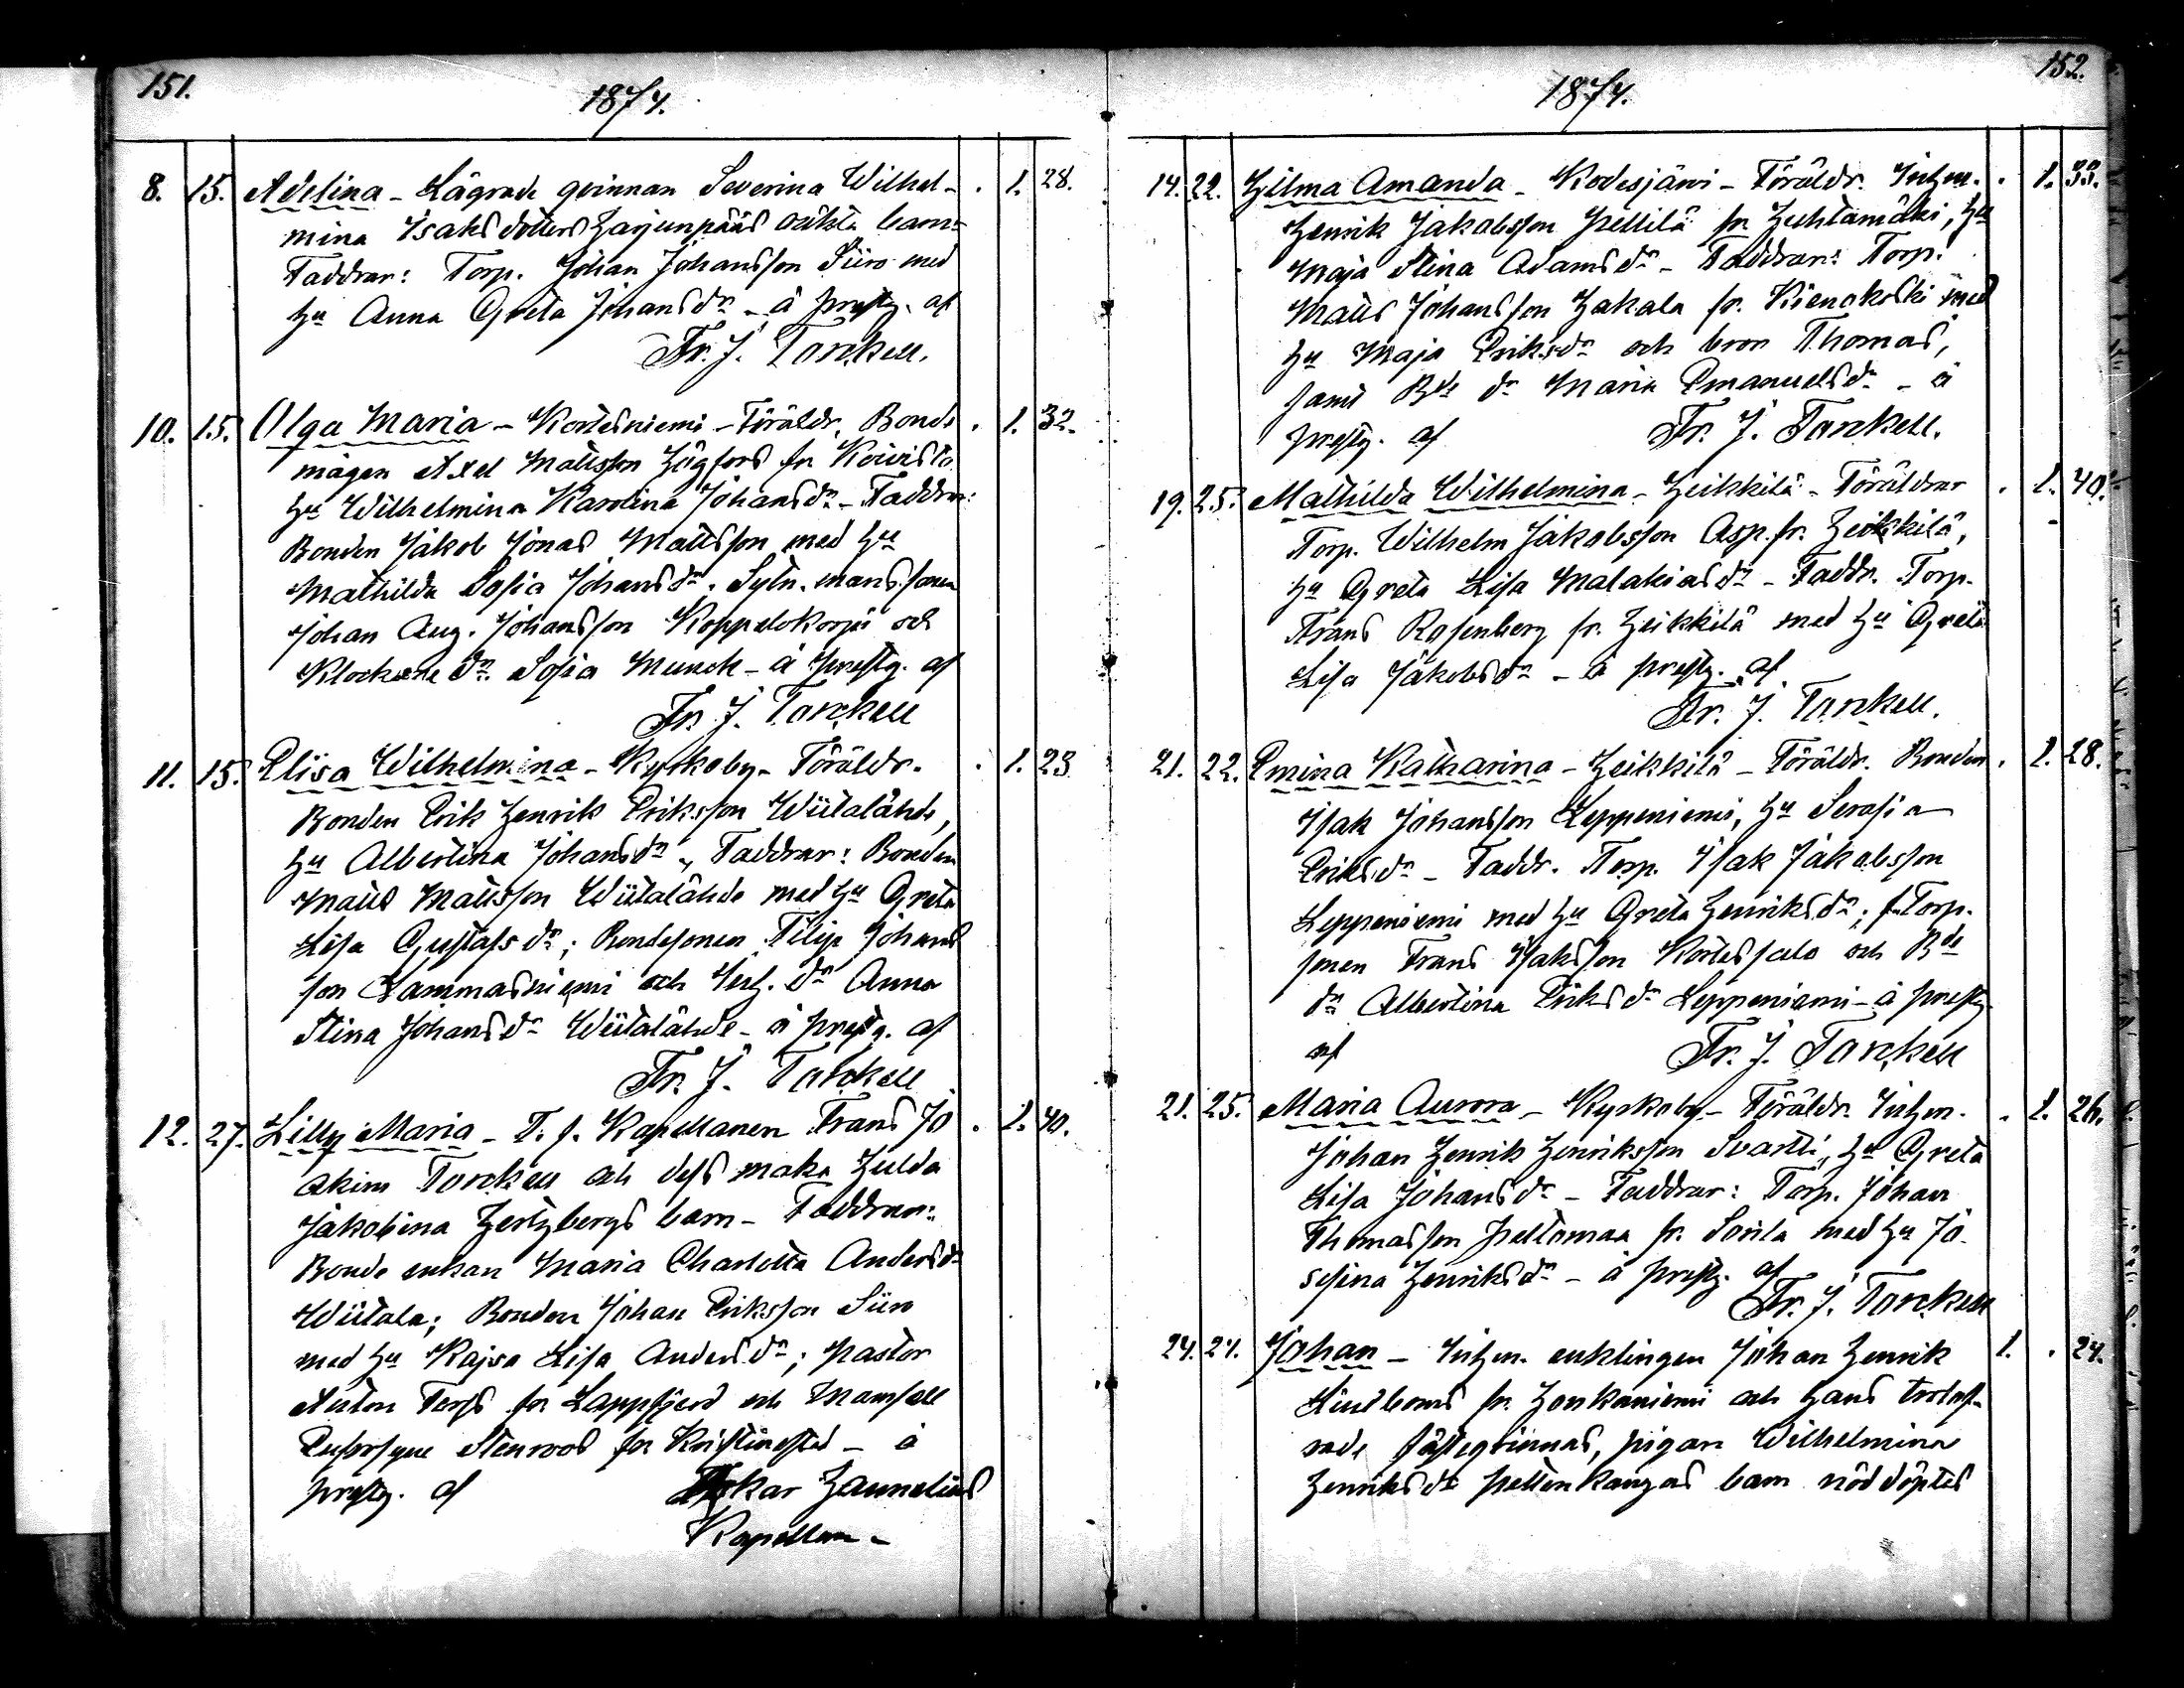 151.
1874.
8. 15. Adelina - Lägrade qvinnan Severina Wilhel- . 1. 28.
mina Isaksdotters Harjunpääs oäkta barn-
Faddrar: Torp. Johan Johansson Siiro med
hu Anna Greta Johansdr - å prestg. af
Fr. J. Torckell.
10. 15. Olga Maria - Kortesniemi - Föräldr. Bonde . 1. 32.
mågen Axel Mattsson Högfors fr Koivisto
hu Wilhelmina Karolina Johansdr - Faddrar:
Bonden Jakob Jonas Mattsson med hu
Mathilda Sofia Johansdr. Sytn. manssonen
Johan Aug. Johansson Koppelokorpi och
Klockare dr. Sofia Munck - å prestg. af
Fr. J. Torckell
11. 15. Elisa Wilhelmina - Kyrkoby - Föräldr. . 1. 23
Bonden Erik Henrik Eriksson Wiitalähde,
hu Albertina Johansdr, Faddrar: Bonden
Matts Mattsson Wiitalähde med hu Greta
Lisa Gustafsdr; Bondesonen Filip Johans
son Lammasniemi och Inh. dr Anna
Stina Johansdr Wiitalähde - å prestg. af
Fr. J. Torckell
12. 27. Lilly Maria - T. f. Kapellanen Frans Jo . 1. 40.
akim Torckell och dess maka Hulda
Jakobina Hertzbergs barn - Faddrar:
Bonde enkan Maria Charlotta Andersdr
Wiitala; Bonden Johan Eriksson Siiro
med hu Kajsa Lisa Andersdr; Pastor
Anton fr Lappfjerd och Mamsell
Stenroos fr Kristinestad - å
prestg. af Oskar Hannelius
Kapellan -
152.
1874.
14. 22. Hilma Amanda - Kodesjärvi - Föräldr. Inhm. . 1. 33.
Henrik Jakobsson Pellilä fr Huhtamäki, hu
Maja Stina Adamsdr - Faddrar: Torp.
Matts Johansson Hakala fr. Kienokoski med
hu Maja Eriksdr och bror Thomas,
samt Bde dr Maria Emanuelsdr - å
prestg. af Fr. J. Torckell.
19. 25. Mathilda Wilhelmina - Heikkilä - Föräldrar . 1. 40.
Torp. Wilhelm Jakobsson Asp fr. Heikkilä,
hu Greta Lisa Malakiasdr - Faddr. Torp.
Frans Rosenberg fr. Heikkilä med hu Greta
Lisa Jakobsdr - å prestg. af
Fr. J. Torckell.
21. 22. Emina Katharina - Heikkilä - Föräldr. Bonden . 1. 28.
Isak Johansson Leppeniemi, hu Serafia
Eriksdr - Faddr. Torp. Isak Jakobsson
Leppeniemi med hu Greta Henriksdr; Torp.
sonen Frans Isaksson Kortessalo och Bde
dr Albertina Eriksdr Leppeniemi - å prestg
af Fr. J. Torckell
21. 25. Maria Aurora - Kyrkoby - Föräldr. Inhm. . 1. 26.
Johan Henrik Henriksson Svartti, hu Greta
Lisa Johansdr - Faddrar: Torp. Johan
Thomasson Peltomaa fr. Sorila med hu Jo-
sefina Henriksdr - å prestg. af
Fr. J. Torckell
24. 24. Johan - Inhm. enklingen Johan Henrik 1. . 24.
Lindboms fr. Honkaniemi och hans trolof-
vade fästeqvinnas, pigan Wilhelmina
Henriksdr Peltenkangas barn nöddöptes